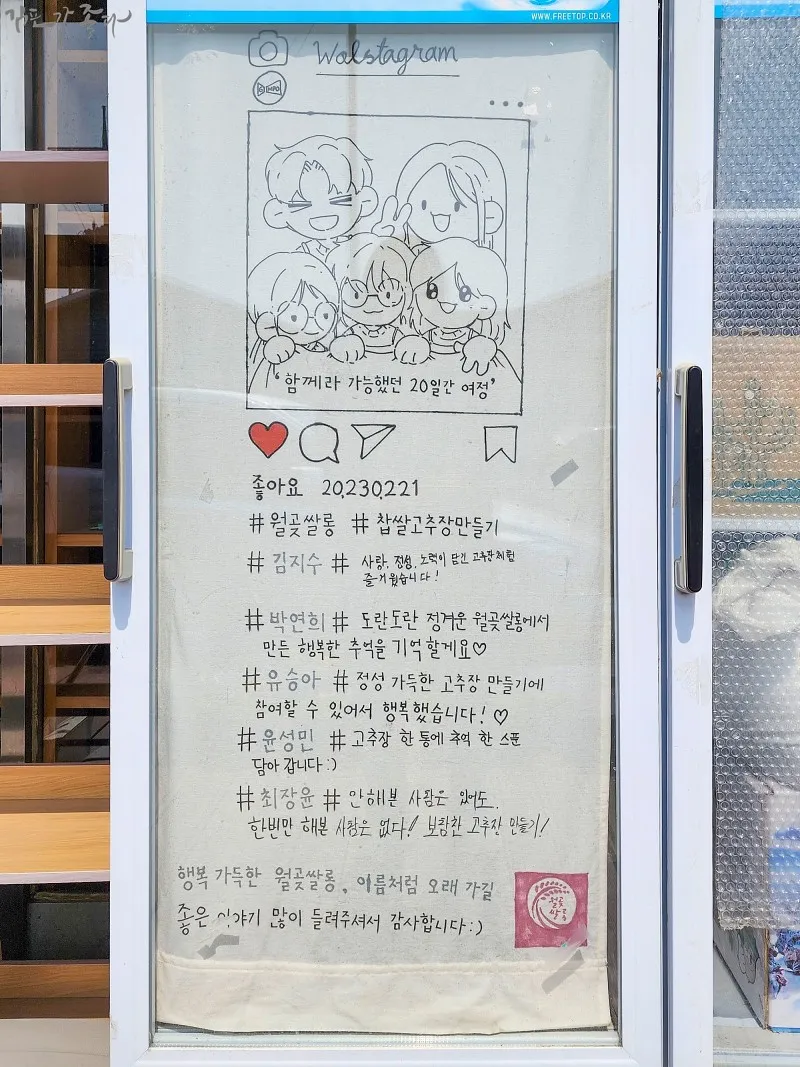 김포가 좋다
WWW.FREETOP.CO.KR
Walstagram
GIMPO
'함께라 가능했던 20일간 여정'
좋아요 20,230,221
#월곶쌀롱 #찹쌀고추장만들기
#김지수 # 사랑, 정성, 노력이 담긴 고추장체험
즐거웠습니다!
#박연희 # 도란도란 정겨운 월곶쌀롱에서
만든 행복한 추억을 기억할게요♡
#유승아 # 정성 가득한 고추장 만들기에
참여할 수 있어서 행복했습니다! ♡
#윤성민 #고추장 한 통에 추억 한 스푼
담아 갑니다:)
#최장윤 # 안해본 사람은 있어도,
한번만 해본 사람은 없다! 보람찬 고추장 만들기!
행복 가득한 월곶쌀롱, 이름처럼 오래 가길
좋은 이야기 많이 들려주셔서 감사합니다:)
월곶
쌀롱